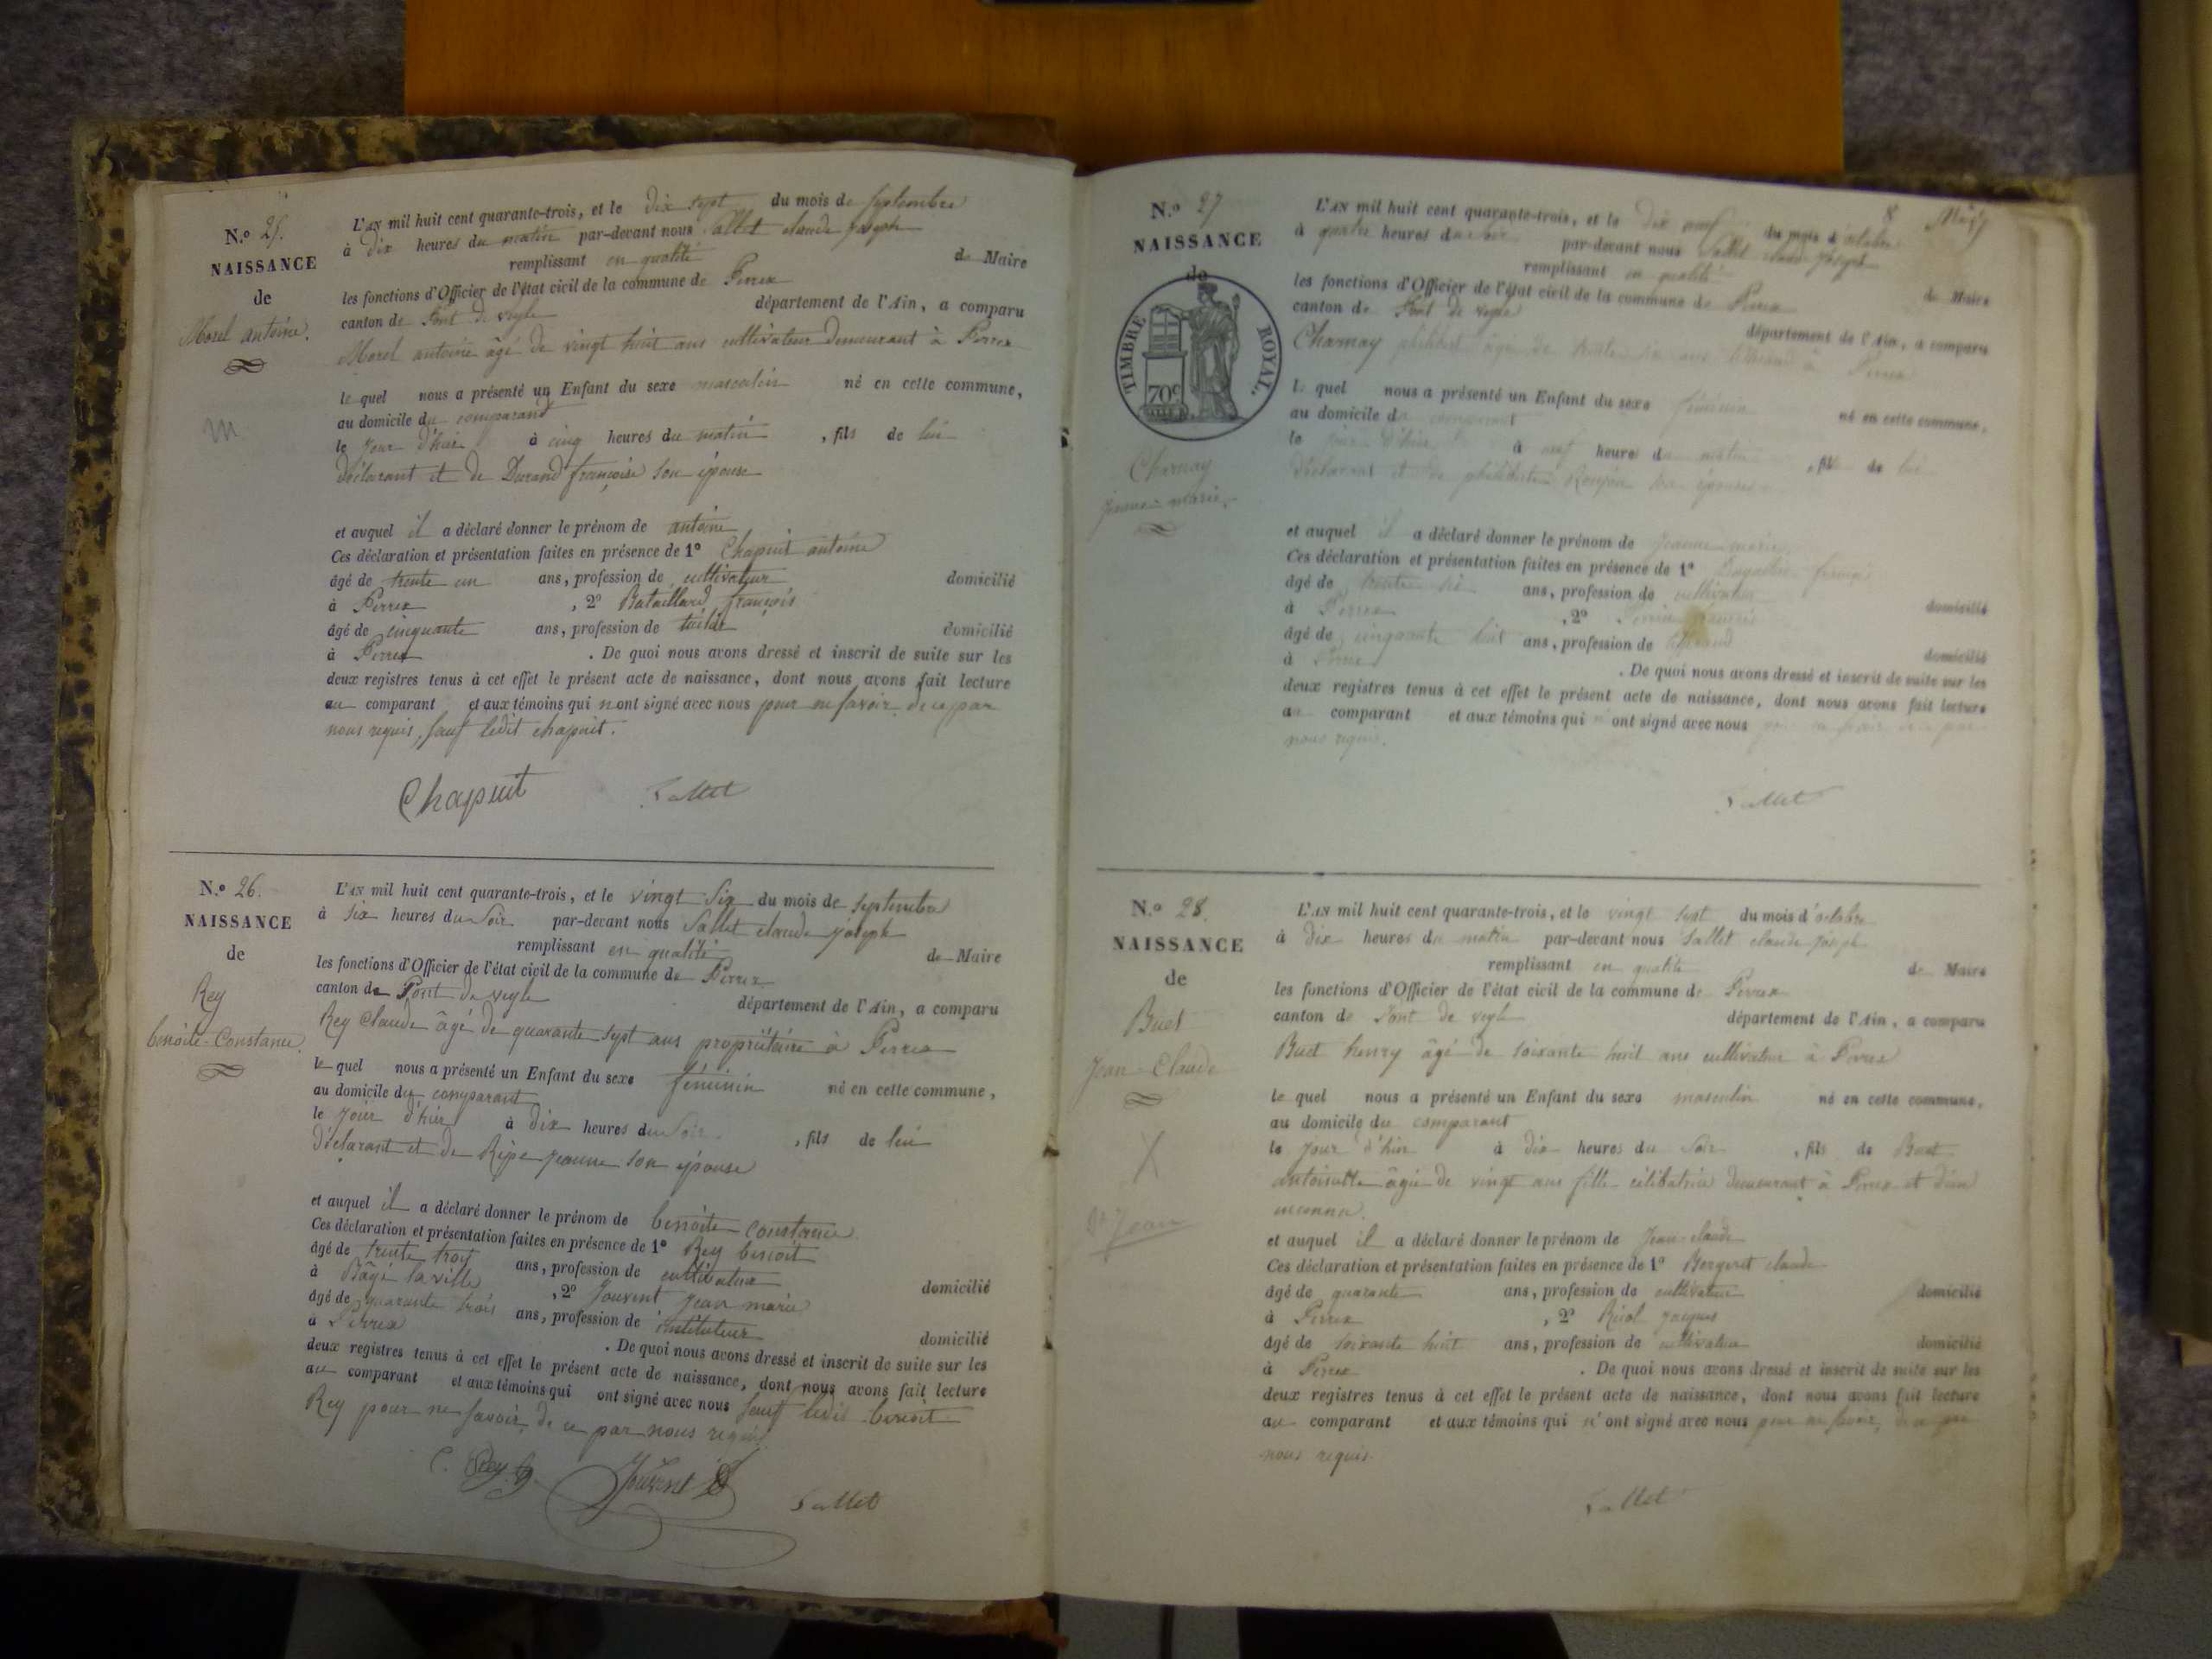 N.º 25.
NAISSANCE
de
Morel antoine.
L'AN mil huit cent quarante-trois, et le dix sept du mois de septembre
à dix heures du matin par-devant nous Sallet claude joseph
remplissant en qualité de Maire
les fonctions d'Officier de l'état civil de la commune de Perrex
canton de Pont de veyle département de l'Ain, a comparu
Morel antoine âgé de vingt huit ans cultivateur demeurant à Perrex
le quel nous a présenté un Enfant du sexe masculin né en cette commune,
au domicile du comparant
le jour d'hui à cinq heures du matin , fils de lui
déclarant et de Durand françoise son épouse
et auquel il a déclaré donner le prénom de antoine
Ces déclaration et présentation faites en présence de 1º Chapuit antoine
âgé de trente un ans, profession de cultivateur domicilié
à Perrex , 2º Bataillard françois
âgé de cinquante ans, profession de domicilié
à Perrex . De quoi nous avons dressé et inscrit de suite sur les
deux registres tenus à cet effet le présent acte de naissance, dont nous avons fait lecture
au comparant et aux témoins qui n ont signé avec nous pour ne savoir de ce par
nous requis, sauf ledit chapuit.
Chapuit Sallet
N.º 26.
NAISSANCE
de
Rey
benoite-Constance.
L'AN mil huit cent quarante-trois, et le vingt six du mois de septembre
à six heures du soir par-devant nous Sallet claude joseph
remplissant en qualité de Maire
les fonctions d'Officier de l'état civil de la commune de Perrex
canton de Pont de veyle département de l'Ain, a comparu
Rey Claude âgé de quarante sept ans propriétaire à Perrex
le quel nous a présenté un Enfant du sexe féminin né en cette commune,
au domicile du comparant
le jour d'hier à dix heures du soir , fils de lui
déclarant et de Jeanne son épouse
et auquel il a déclaré donner le prénom de benoite constance
Ces déclaration et présentation faites en présence de 1º Rey benoit
âgé de trente trois ans, profession de cultivateur domicilié
à Bâgé la ville , 2º Jouvent jean marie
âgé de quarante trois ans, profession de instituteur domicilié
à Perrex . De quoi nous avons dressé et inscrit de suite sur les
deux registres tenus à cet effet le présent acte de naissance, dont nous avons fait lecture
au comparant et aux témoins qui ont signé avec nous sauf ledit benoit
Rey pour ne savoir de ce par nous requis.
C. Rey Jouvent Sallet
8
N.º 27
NAISSANCE
de
TIMBRE ROYAL.
70c
Charnay
jeanne-marie.
L'AN mil huit cent quarante-trois, et le dix neuf du mois d'octobre
à quatre heures du soir par-devant nous Sallet claude joseph
remplissant en qualité de Maire
les fonctions d'Officier de l'état civil de la commune de Perrex
canton de Pont de veyle département de l'Ain, a comparu
Charnay philibert âgé de trente six ans à Perrex
le quel nous a présenté un Enfant du sexe féminin né en cette commune,
au domicile du comparant
le jour d'hui à neuf heures du matin , fils de lui
déclarant et de philiberte son épouse
et auquel il a déclaré donner le prénom de jeanne marie
Ces déclaration et présentation faites en présence de 1º françois
âgé de trente six ans, profession de cultivateur domicilié
à Perrex , 2º françois
âgé de cinquante huit ans, profession de domicilié
à Perrex . De quoi nous avons dressé et inscrit de suite sur les
deux registres tenus à cet effet le présent acte de naissance, dont nous avons fait lecture
au comparant et aux témoins qui n' ont signé avec nous pour ne savoir de ce par
nous requis.
Sallet
N.º 28.
NAISSANCE
de
Buet
Jean-Claude
L'AN mil huit cent quarante-trois, et le vingt sept du mois d'octobre
à dix heures du matin par-devant nous Sallet claude joseph
remplissant en qualité de Maire
les fonctions d'Officier de l'état civil de la commune de Perrex
canton de Pont de veyle département de l'Ain, a comparu
Buet henry âgé de soixante huit ans cultivateur à Perrex
le quel nous a présenté un Enfant du sexe masculin né en cette commune,
au domicile du comparant
le jour d'hier à dix heures du soir , fils de Buet
antoinette âgée de vingt ans fille célibatrice demeurant à Perrex et d'un
inconnu.
et auquel il a déclaré donner le prénom de Jean-claude
Ces déclaration et présentation faites en présence de 1º Bergeret claude
âgé de quarante ans, profession de cultivateur domicilié
à Perrex , 2º jacques
âgé de soixante huit ans, profession de cultivateur domicilié
à Perrex . De quoi nous avons dressé et inscrit de suite sur les
deux registres tenus à cet effet le présent acte de naissance, dont nous avons fait lecture
au comparant et aux témoins qui n' ont signé avec nous pour ne savoir, de ce par
nous requis.
Sallet